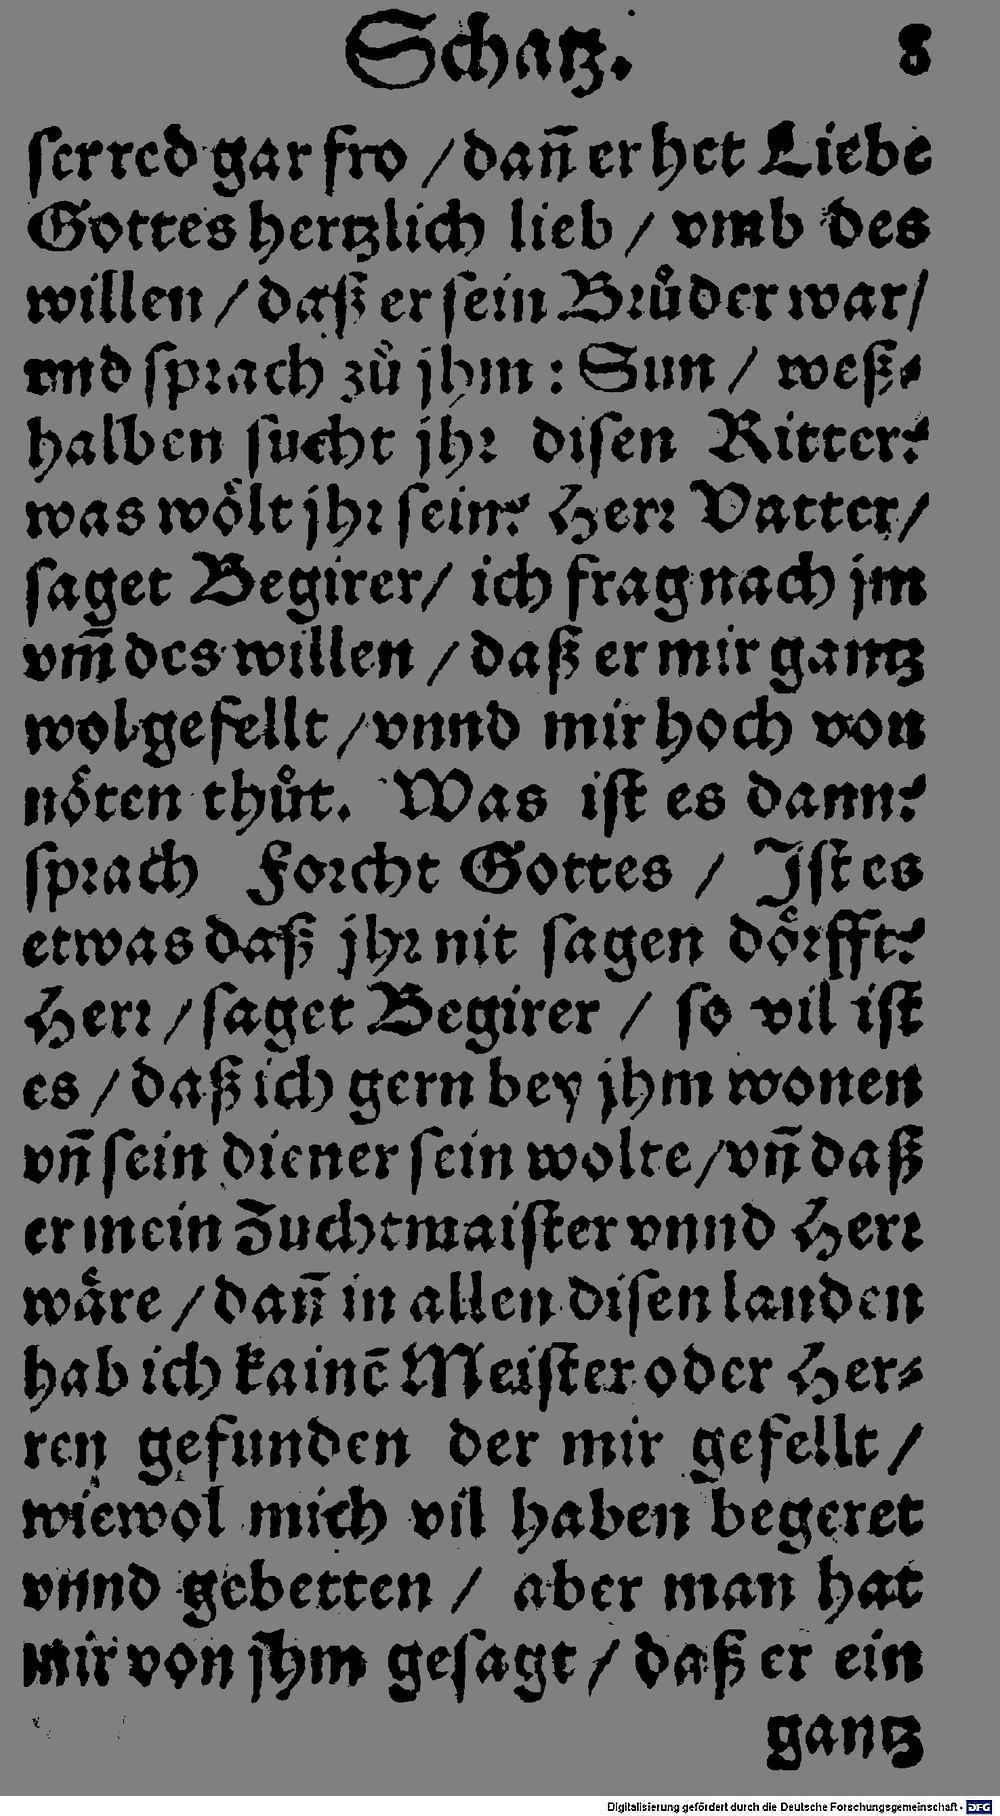 Schatz. 8
ser red gar fro / dañ er het Liebe
Gottes hertzlich lieb / vmb des
willen / daß er sein Brůder war /
vnd sprach zů jhm : Sun / weß⸗
halben sucht jhr disen Ritter?
was wo̊lt jhr sein? Herr Vatter /
saget Begirer / ich frag nach jm
vm̃ des willen / daß er mir gantz
wolgefellt / vnnd mir hoch von
nöten thůt. Was ist es dann?
sprach Forcht Gottes / Ist es
etwas daß jhr nit sagen dörfft?
Herr / saget Begirer / so vil ist
es / daß ich gern bey jhm wonen
vñ sein diener sein wolte / vñ daß
er mein Zuchtmaister vnnd Herr
wäre / dañ in allen disen landen
hab ich kainē Meister oder Her⸗
ren gefunden der mir gefellt /
wiewol mich vil haben begeret
vnnd gebetten / aber man hat
mir von jhm gesagt / daß er ein
gantz
Digitalisierung gefördert durch die Deutsche Forschungsgemeinschaft - DFG